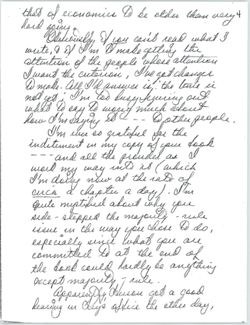 that of economics to be other than very
hard going.
Obviously, if you can't read what I
write, & if I'm to make getting the
attention of the people whose attention
I want the criterion, I've got changes
to make. All I'd answer is: the time is
not yet. I'm too busy figuring out
what to say to worry much about
how I'm saying it --- to other people.
I'm ever so grateful for the
indentment in my copy of your book
--- and all the prouder as I
read my way into it (which
I'm doing now at the rate of
circa a chapter a day). I'm
quite mystified about why you
side-stepped the majority-rule
issue in the way you chose to do,
especially since what you are
committed to at the end of
the book could hardly be anything
except majority-rule.
Apparently Pierson got a good
hearing in office the other day,